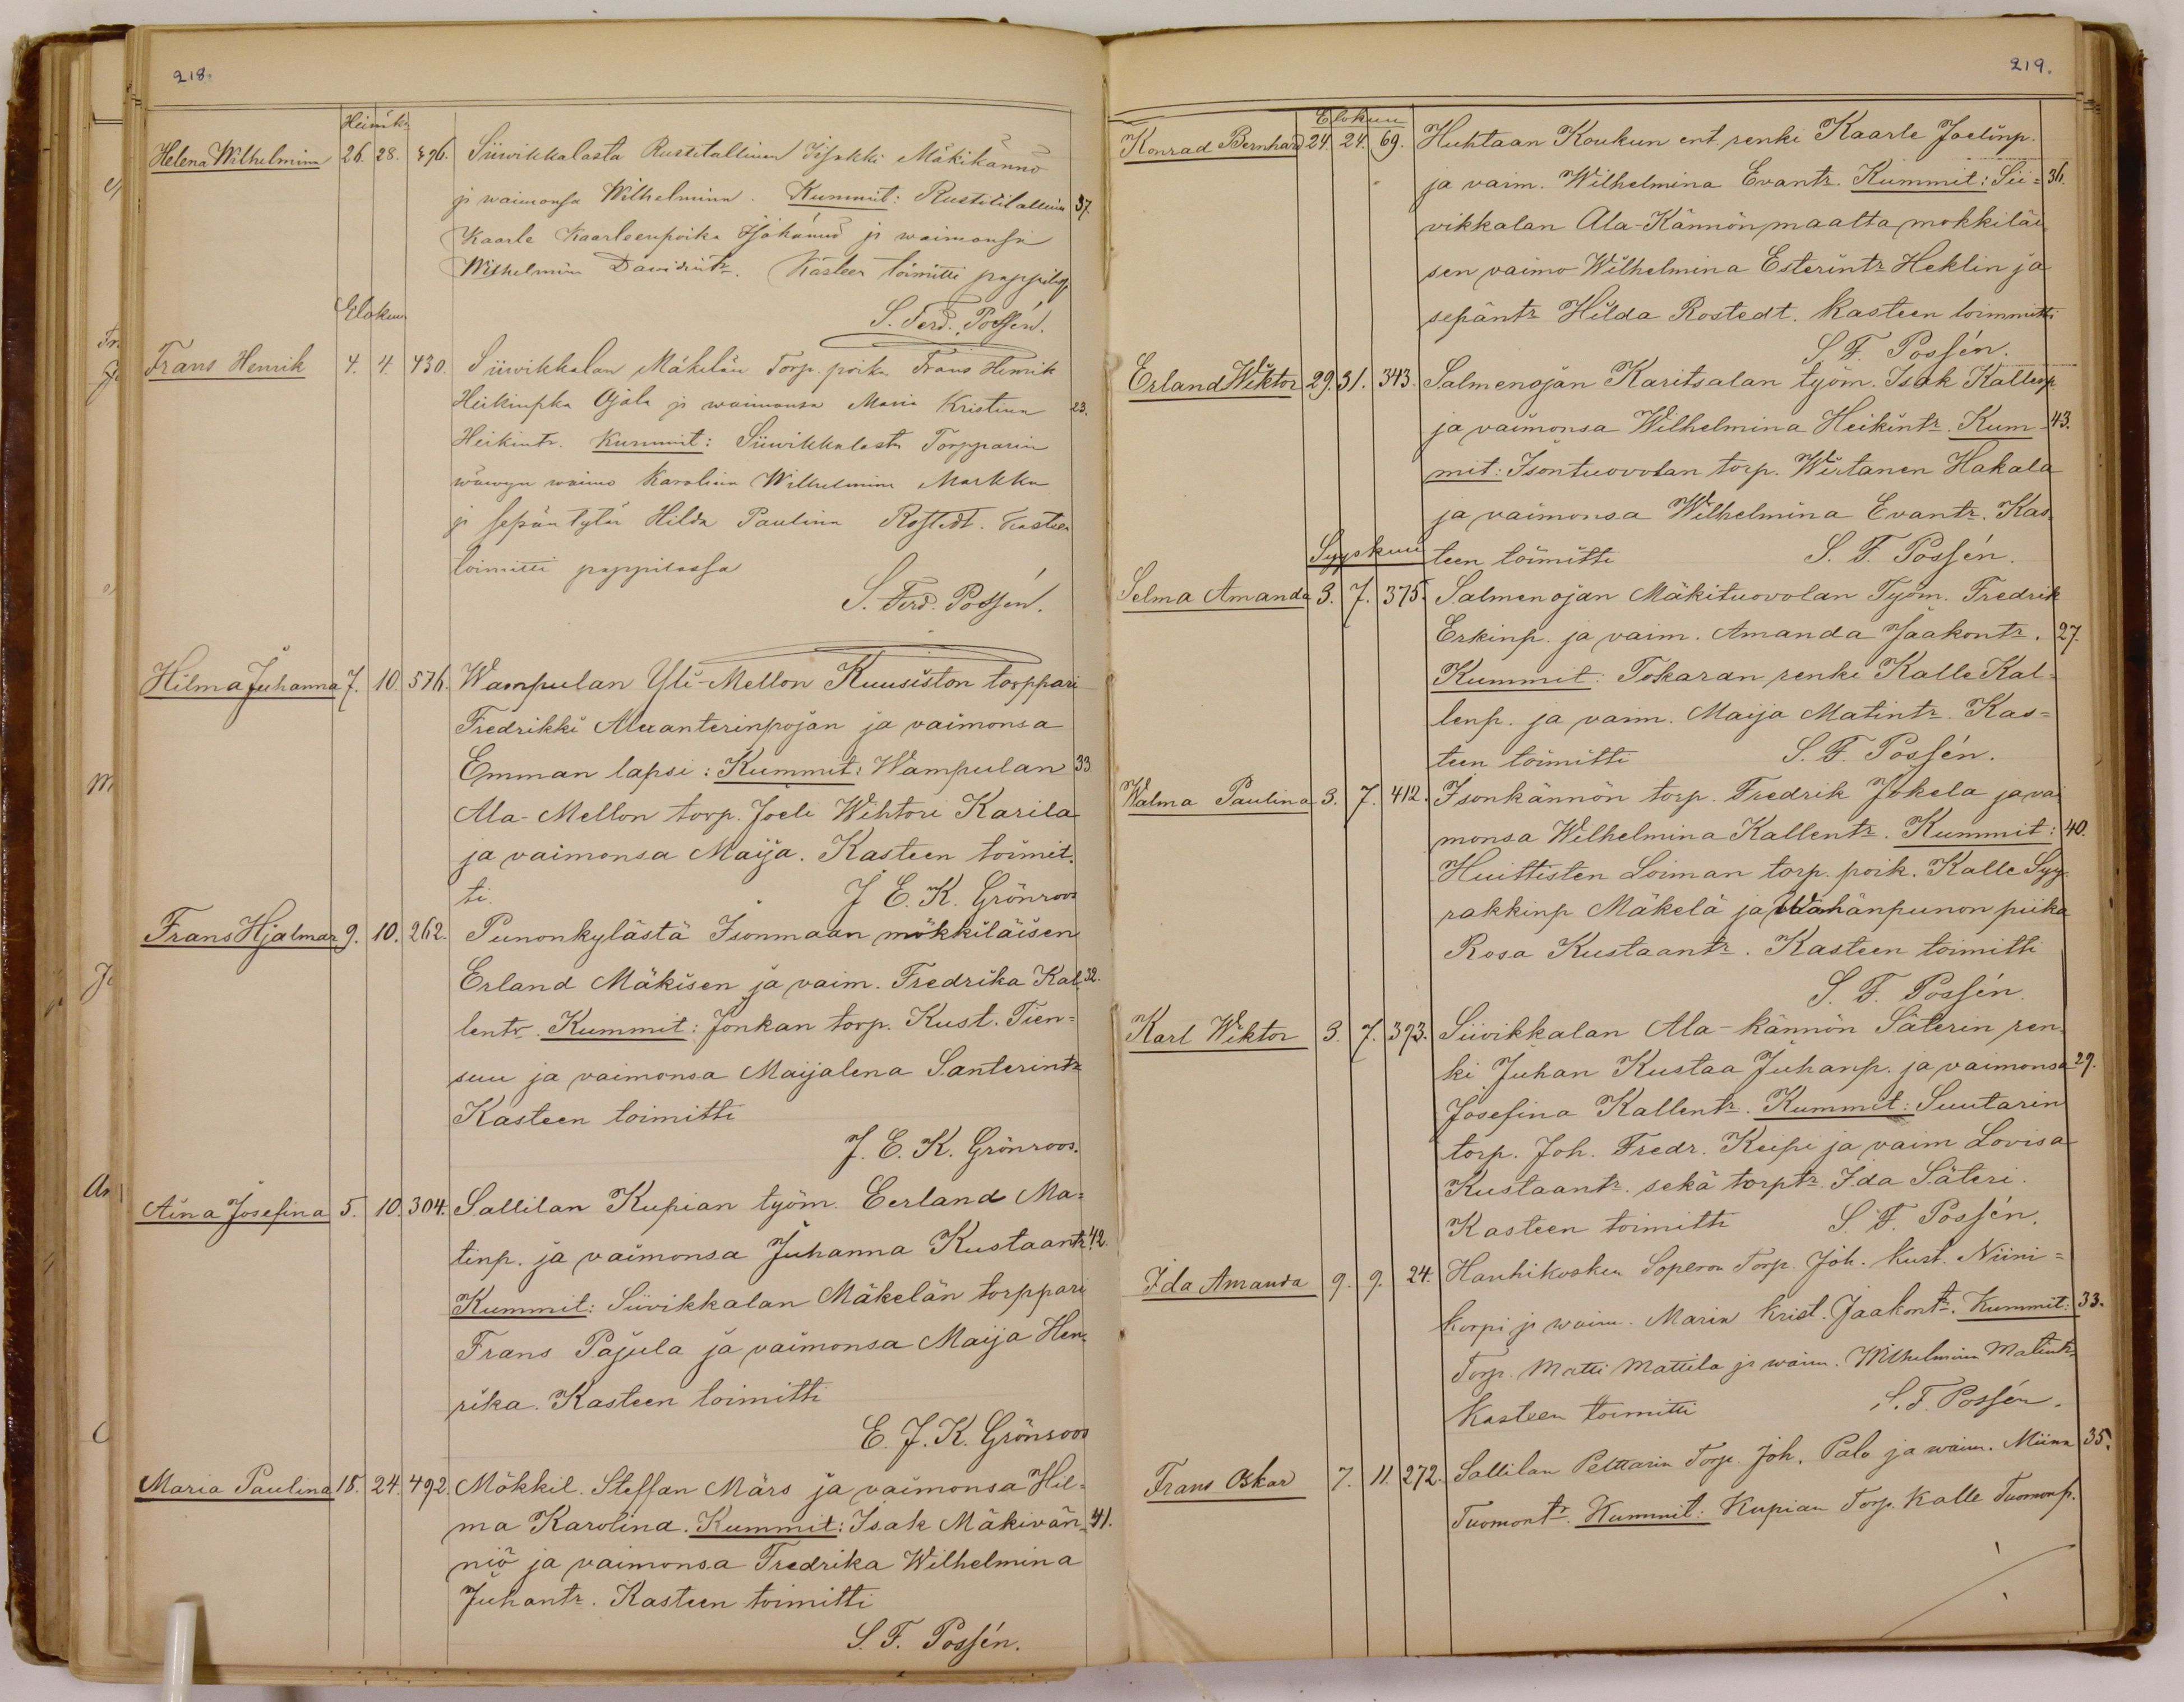 218.
Heinäk.
Helena Wilhelmina 26. 28. 496. Siiwikkalasta Rustitallinen Iisakki Mäkikännö
ja waimonsa Wilhelmina. Kummit: Rustitilallinen 37.
Kaarle Kaarleenpoika Isokännö ja waimonsa
Wilhelmina Davidintr. Kasteen toimitti pappilassa
S. Ferd. Possén.
Elokuu
Frans Henrik 4. 4. 430. Siiwikkalan Mäkelän Torp. poika Frans Henrik
Heikinpka Ojala ja waimonsa Maria Kristina 23.
Heikintr. Kummit: Siiwikkalasta Torpparin
wäwyn waimo Karolina Wilhelmina Markku
ja sepän tytär Hilda Paulina Rostedt. Kasteen
toimitti pappilassa
S. Ferd. Possén.
Hilma Juhanna 7. 10. 576. Wampulan Yli-Mellon Kuusiston torppari
Fredrikki Alexanterinpojan ja vaimonsa
Emman lapsi: Kummit: Wampulan 33.
Ala-Mellon torp. Joeli Wihtori Karila
ja vaimonsa Maija. Kasteen toimit-
ti. J. E. K. Grönroos
Frans Hjalmar 9. 10. 262. Punonkylästä Isonmaan mökkiläisen
Erland Mäkisen ja vaim. Fredrika Kal- 32.
lentr. Kummit: Jonkan torp. Kust. Tien=
suu ja vaimonsa Maijalena Santerintr.
Kasteen toimitti
J. E. K. Grönroos.
Aina Josefina 5. 10. 304. Sallilan Kupian työm. Eerland Ma=
tinp. ja vaimonsa Juhanna Kustaantr. 42.
Kummit: Siivikkalan Mäkelän torppari
Frans Pajula ja vaimonsa Maija Hen-
rika. Kasteen toimitti
E. J. K. Grönroos
Maria Paulina 18. 24. 492. Mökkil. Steffan Märs ja vaimonsa Hil=
ma Karolina. Kummit: Isak Mäkivän- 41.
niö ja vaimonsa Fredrika Wilhelmina
Juhantr. Kasteen toimitti
S. F. Possén.
219.
Elokuu
Konrad Bernhard 24. 24. 69. Huhtaan Koukun ent. renki Kaarle Joelinp.
ja vaim. Wilhelmina Evantr. Kummit: Sii= 36.
vikkalan Ala-Kännön maalta mökkiläi-
sen vaimo Wilhelmina Esterintr Heklin ja
sepäntr Hilda Rostedt. Kasteen toimmitti
S. F. Possén.
Erland Wiktor 29. 31. 343. Salmenojan Karitsalan työm. Isak Kallenp
ja vaimonsa Wilhelmina Heikintr. Kum- 43.
mit: Isontuovolan torp. Wirtanen Hakala
ja vaimonsa Wilhelmina Evantr. Kas-
teen toimitti S. F. Possén.
Syyskuu
Selma Amanda 3. 7. 375. Salmenojan Mäkituovolan Työm. Fredrik
Erkinp. ja vaim. Amanda Jaakontr. 27.
Kummit: Tokaran renki Kalle Kal-
lenp. ja vaim. Maija Matintr. Kas=
teen toimitti S. F. Possén.
Walma Paulina 3. 7. 412. Isonkännön torp. Fredrik Jokela ja vai
monsa Wilhelmina Kallentr. Kummit: 40.
Huittisten Loiman torp. poik. Kalle Syy-
rakkinp Mäkelä ja Wähänpunon piika
Rosa Kustaantr. Kasteen toimitti
S. F. Possén.
Karl Wiktor 3. 7. 393. Siivikkalan Ala-kännön Säterin ren-
ki Juhan Kustaa Juhanp. ja vaimonsa 29.
Josefina Kallentr. Kummit: Suutarin
torp. Joh. Fredr. Keipi ja vaim Lovisa
Kustaantr. sekä torptr. Ida Säteri.
Kasteen toimitti S. F. Possén.
Ida Amanda 9. 9. 24. Hanhikosken Soperon Torp. Joh. Kust. Niini=
korpi ja waim. Maria Krist. Jaakontr. Kummit: 33.
Torp. Matti Mattila ja waim. Wilhelmina Matintr
Kasteen toimitti S. F. Possén.
Frans Oskar 7. 11. 272. Sallilan Pelttarin Torp. Joh. Palo ja waim. Miina 35.
Tuomontr. Kummit: Kupian Torp. Kalle Tuomonp.